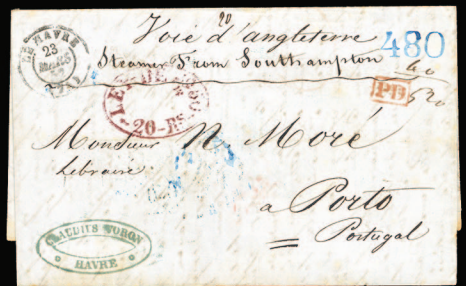 20
Voie d'angleterre
Steamer From Southampton
480
40
520
LE HAVRE
23
MARS
PD
20-Rs
Monsieur N. Moré
Libraire
a Porto
Portugal
CLAUDIUS
HAVRE